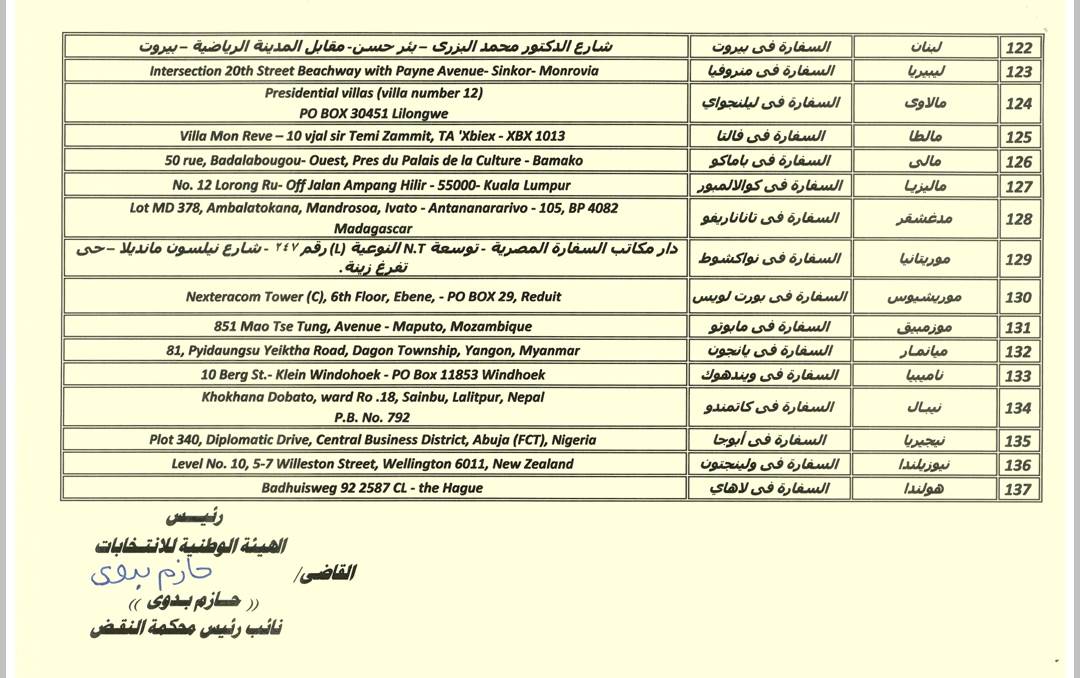 122 لبنان السفارة فى بيروت شارع الدكتور محمد البزرى – بئر حسن- مقابل المدينة الرياضية – بيروت
123 ليبيريا السفارة فى منروفيا Intersection 20th Street Beachway with Payne Avenue- Sinkor- Monrovia
124 مالاوى السفارة فى ليلنجواي Presidential villas (villa number 12)
PO BOX 30451 Lilongwe
125 مالطا السفارة فى فالتا Villa Mon Reve – 10 vjal sir Temi Zammit, TA 'Xbiex - XBX 1013
126 مالى السفارة فى باماكو 50 rue, Badalabougou- Ouest, Pres du Palais de la Culture - Bamako
127 ماليزيا السفارة فى كوالالمبور No. 12 Lorong Ru- Off Jalan Ampang Hilir - 55000- Kuala Lumpur
128 مدغشقر السفارة فى تاناناريفو Lot MD 378, Ambalatokana, Mandrosoa, Ivato - Antananararivo - 105, BP 4082
Madagascar
129 موريتانيا السفارة فى نواكشوط دار مكاتب السفارة المصرية - توسعة N.T النوعية (L) رقم ٢٤٧ - شارع نيلسون مانديلا – حى
تفرغ زينة.
130 موريشيوس السفارة فى بورت لويس Nexteracom Tower (C), 6th Floor, Ebene, - PO BOX 29, Reduit
131 موزمبيق السفارة فى مابوتو 851 Mao Tse Tung, Avenue - Maputo, Mozambique
132 ميانمار السفارة فى يانجون 81, Pyidaungsu Yeiktha Road, Dagon Township, Yangon, Myanmar
133 ناميبيا السفارة فى ويندهوك 10 Berg St.- Klein Windohoek - PO Box 11853 Windhoek
134 نيبال السفارة فى كاتمندو Khokhana Dobato, ward Ro .18, Sainbu, Lalitpur, Nepal
P.B. No. 792
135 نيجيريا السفارة فى أبوجا Plot 340, Diplomatic Drive, Central Business District, Abuja (FCT), Nigeria
136 نيوزيلندا السفارة فى ولينجتون Level No. 10, 5-7 Willeston Street, Wellington 6011, New Zealand
137 هولندا السفارة فى لاهاي Badhuisweg 92 2587 CL - the Hague
رئيس
الهيئة الوطنية للانتخابات
القاضى/ حازم بدوى
(( حازم بدوى ))
نائب رئيس محكمة النقض